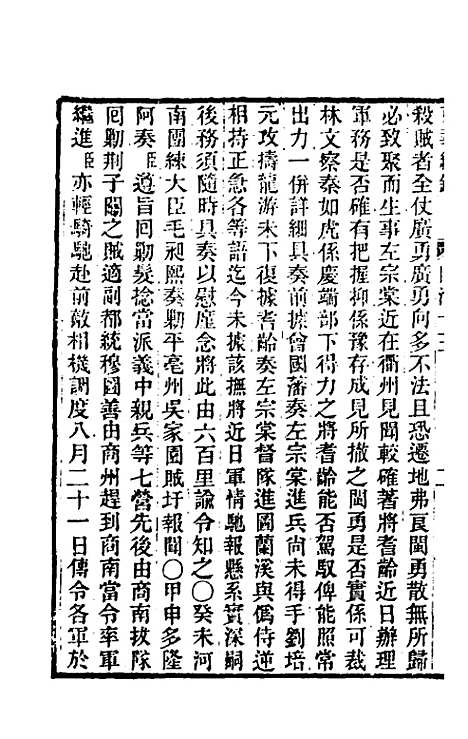 殺賊者全仗廣勇廣勇向多不法且恐遷地弗良閩勇散無所歸
必致聚而生事左宗棠近在衢州見聞較確著將耆齡近日辦理
軍務是否確有把握抑係豫存成見所撤之閩勇是否實係可裁
林文察秦如虎係慶端部下得力之將耆齡能否駕馭俾能照常
出力一併詳細具奏前據曾國藩奏左宗棠進兵尚未得手劉培
元攻擣龍游未下復據耆齡奏左宗棠督隊進圖蘭溪與僞侍逆
相持正急各等語迄今未據該撫將近日軍情馳報懸系實深嗣
後務須隨時具奏以慰廑念將此由六百里諭令知之〇癸未河
南團練大臣毛昶熙奏勦平亳州吳家圍賊圩報聞〇甲申多隆
阿奏臣遵旨回勦髮捻當派義中親兵等七營先後由商南拔隊
回勦荆子關之賊適副都統穆圖善由商州趕到商南當令率軍
繼進臣亦輕騎馳赴前敵相機調度八月二十一日傳令各軍於